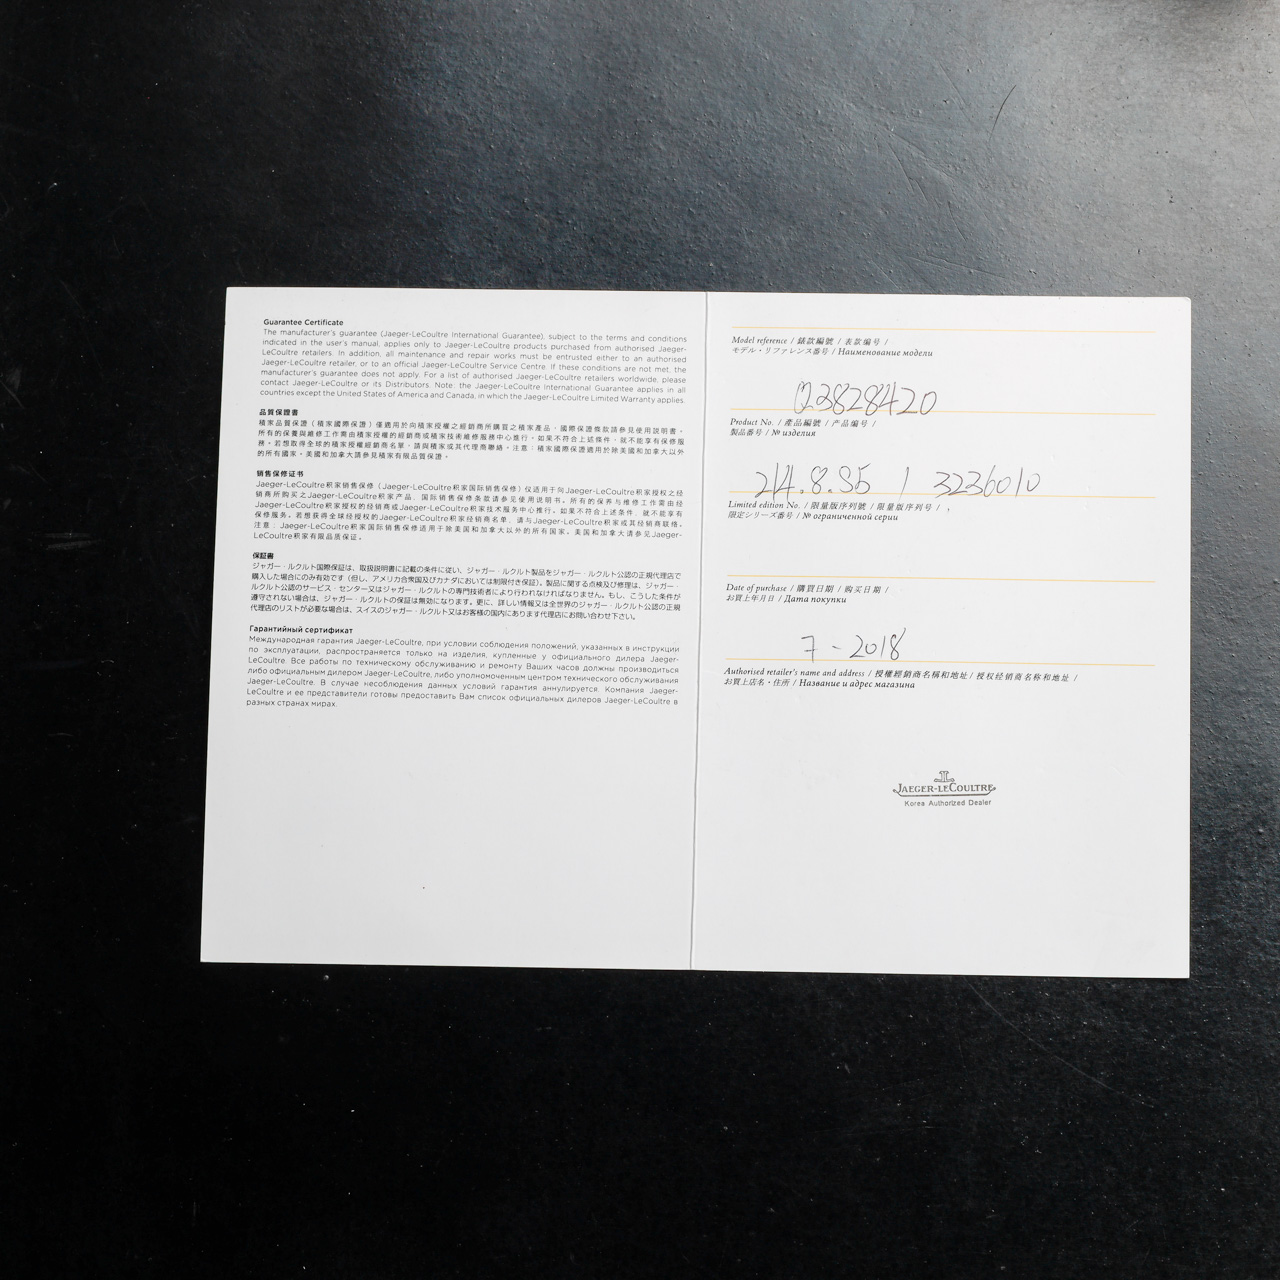 Guarantee Certificate
The manufacturer's guarantee (Jaeger-LeCoultre International Guarantee), subject to the terms and conditions
indicated in the user's manual, applies only to Jaeger-LeCoultre products purchased from authorised Jaeger-
LeCoultre retailers. In addition, all maintenance and repair works must be entrusted either to an authorised
Jaeger-LeCoultre retailer, or to an official Jaeger-LeCoultre Service Centre. If these conditions are not met, the
manufacturer's guarantee does not apply. For a list of authorised Jaeger-LeCoultre retailers worldwide, please
contact Jaeger-LeCoultre or its Distributors. Note: the Jaeger-LeCoultre International Guarantee applies in all
countries except the United States of America and Canada, in which the Jaeger-LeCoultre Limited Warranty applies.
品質保證書
積家品質保證(積家國際保證)僅適用於向積家授權之經銷商所購買之積家產品,國際保證條款請參見使用說明書。
所有的保養與維修工作需由積家授權的經銷商或積家技術維修服務中心進行。如果不符合上述條件,就不能享有保修服
務。若想取得全球的積家授權經銷商名單,請與積家或其代理商聯絡。注意:積家國際保證適用於除美國和加拿大以外
的所有國家。美國和加拿大請參見積家有限品質保證。
销售保修证书
Jaeger-LeCoultre积家销售保修(Jaeger-LeCoultre积家国际销售保修)仅适用于向Jaeger-LeCoultre积家授权之经
销商所购买之Jaeger-LeCoultre积家产品,国际销售保修条款请参见使用说明书。所有的保养与维修工作需由经
Jaeger-LeCoultre积家授权的经销商或Jaeger-LeCoultre积家技术服务中心推行。如果不符合上述条件,就不能享有
保修服务。若想获得全球经授权的Jaeger-LeCoultre积家经销商名单,请与Jaeger-LeCoultre积家或其经销商联络。
注意:Jaeger-LeCoultre积家国际销售保修适用于除美国和加拿大以外的所有国家。美国和加拿大请参见Jaeger-
LeCoultre积家有限品质保证。
保証書
ジャガー・ルクルト国際保証は、取扱説明書に記載の条件に従い、ジャガー・ルクルト製品をジャガー・ルクルト公認の正規代理店で
購入した場合にのみ有効です(但し、アメリカ合衆国及びカナダにおいては制限付き保証)。製品に関する点検及び修理は、ジャガー・
ルクルト公認のサービス・センター又はジャガー・ルクルトの専門技術者により行われなければなりません。もし、こうした条件が
遵守されない場合は、ジャガー・ルクルトの保証は無効になります。更に、詳しい情報又は全世界のジャガー・ルクルト公認の正規
代理店のリストが必要な場合は、スイスのジャガー・ルクルト又はお客様の国内にあります代理店にお問い合わせ下さい。
Гарантийный сертификат
Международная гарантия Jaeger-LeCoultre, при условии соблюдения положений, указанных в инструкции
по эксплуатации, распространяется только на изделия, купленные у официального дилера Jaeger-
LeCoultre. Все работы по техническому обслуживанию и ремонту Ваших часов должны производиться
либо официальным дилером Jaeger-LeCoultre, либо уполномоченным центром технического обслуживания
Jaeger-LeCoultre. В случае несоблюдения данных условий гарантия аннулируется. Компания Jaeger-
LeCoultre и ее представители готовы предоставить Вам список официальных дилеров Jaeger-LeCoultre в
разных странах мира.
Model reference / 錶款編號 / 表款编号 /
モデル・リファレンス番号 / Наименование модели
Q3828420
Product No. / 產品編號 / 产品编号 /
製品番号 / № изделия
214.8.S5 / 3236010
Limited edition No. / 限量版序列號 / 限量版序列号 /
限定シリーズ番号 / № ограниченной серии
Date of purchase / 購買日期 / 购买日期 /
お買上年月日 / Дата покупки
7 - 2018
Authorised retailer's name and address / 授權經銷商名稱和地址 / 授权经销商名称和地址 /
お買上店名・住所 / Название и адрес магазина
JAEGER-LECOULTRE
Korea Authorized Dealer